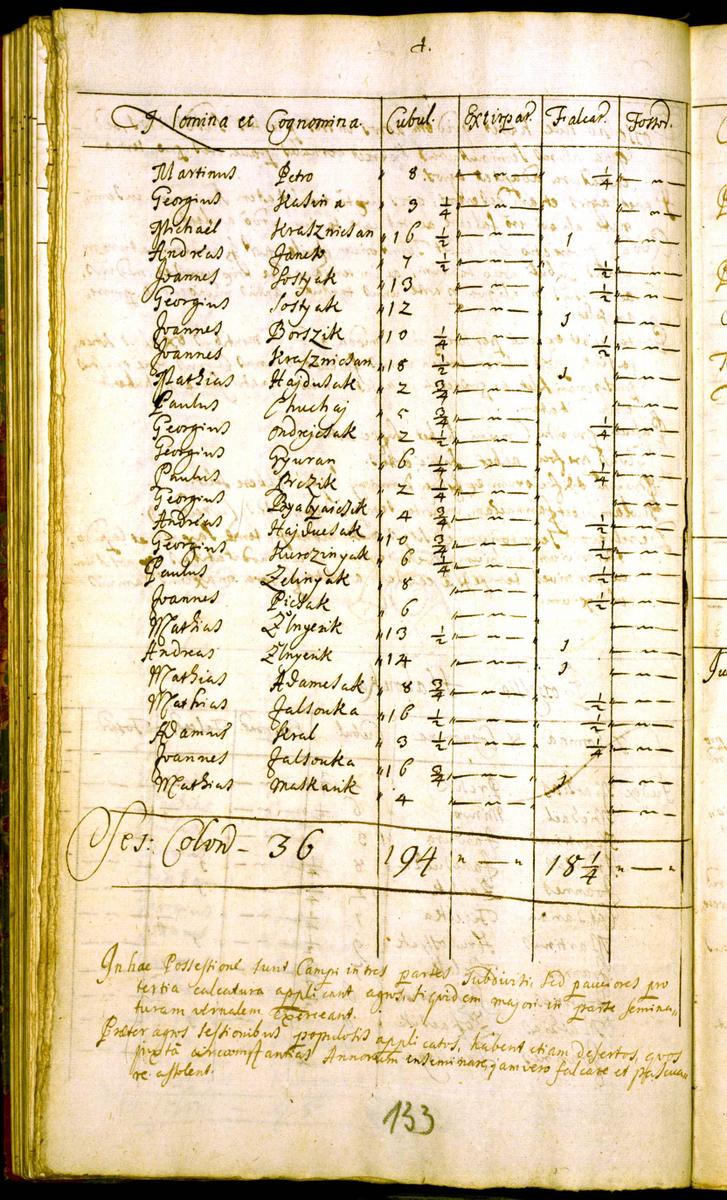 4.
Nomina et Cognomina. Cubul. Extirpat. Falcat. Fossor.
Martinus Petro " 8 " — " — 1/4 " — " —
Georgius Kasina " 9 1/4 " — " — " — " —
Michaël Krasznicsan " 16 1/2 " — " — 1 " — " —
Andreas Janek " 7 1/2 " — " — " — " —
Joannes Sostyak " 13 " — " — 1/2 " — " —
Georgius Sostyak " 12 " — " — 1/2 " — " —
Joannes Borszik " 10 1/4 " — " — 1 " — " —
Joannes Krasznicsan " 18 1/2 " — " — 1/2 " — " —
Mathias Hajdusak " 2 3/4 " — " — 1 " — " —
Paulus Chuchaj " 5 3/4 " — " — " — " —
Georgius Ondrejcsak " 2 1/2 " — " — 1/4 " — " —
Georgius Gyuran " 6 1/4 " — " — " — " —
Paulus " 2 1/4 " — " — 1/4 " — " —
Georgius " 4 3/4 " — " — " — " —
Andreas Hajducsak " 10 3/4 " — " — 1/2 " — " —
Georgius " 6 1/4 " — " — 1/2 " — " —
Paulus Zelinyak " 8 " — " — 1/2 " — " —
Joannes Picsak " 6 " — " — 1/2 " — " —
Mathias " 13 1/2 " — " — 1 " — " —
Andreas " 14 " — " — 1 " — " —
Mathias Adamcsak " 8 3/4 " — " — " — " —
Mathias Jalsouka " 16 1/2 " — " — 1/2 " — " —
Adamus Kral " 3 1/2 " — " — 1/2 1/4 " — " —
Joannes Jalsouka " 16 3/4 " — " — 1 " — " —
Mathias Maskarik " 4 " — " — " — " —
Ses: Colon - 36 194 " — " 18 1/4 " — "
In hac Possessione sunt Campi in tres partes Subdivisi, sed pauciores pro
tertia calcatura applicant agros, siquidem majori in parte semina„
turam vernalem exerceant.
Præter agros Sessionibus populosis applicatos, habent etiam desertos, quos
juxta circumstantias Annorum inseminare, jam vero falcare et pascua„
re assolent.
133